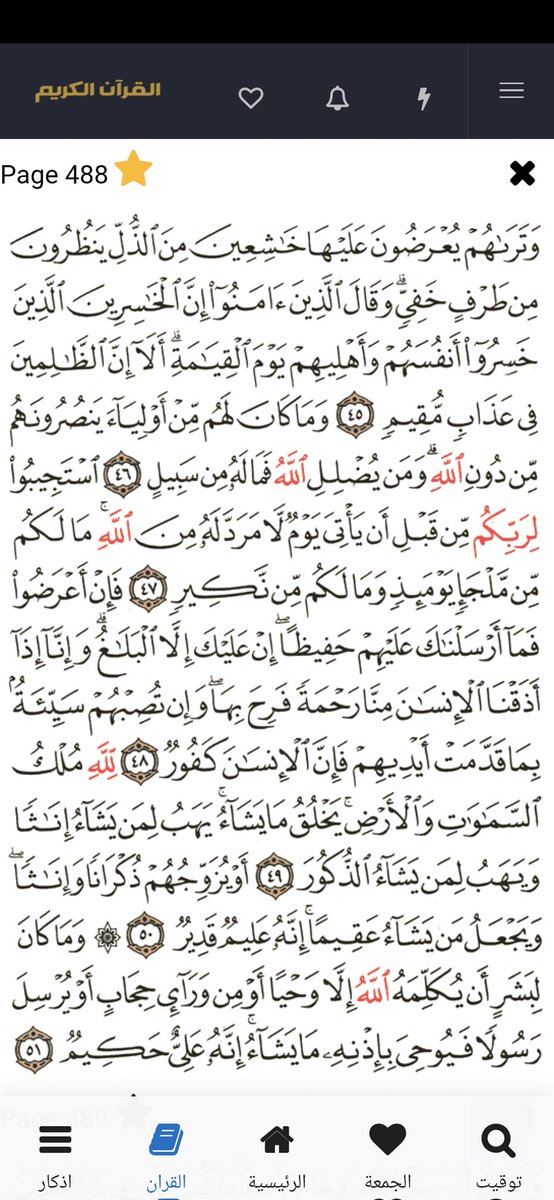 القرآن الكريم
Page 488
وَتَرَىٰهُمْ يُعْرَضُونَ عَلَيْهَا خَٰشِعِينَ مِنَ ٱلذُّلِّ يَنظُرُونَ
مِن طَرْفٍ خَفِيٍّ ۗ وَقَالَ ٱلَّذِينَ ءَامَنُوٓا۟ إِنَّ ٱلْخَٰسِرِينَ ٱلَّذِينَ
خَسِرُوٓا۟ أَنفُسَهُمْ وَأَهْلِيهِمْ يَوْمَ ٱلْقِيَٰمَةِ ۗ أَلَآ إِنَّ ٱلظَّٰلِمِينَ
فِى عَذَابٍ مُّقِيمٍ ٤٥ وَمَا كَانَ لَهُم مِّنْ أَوْلِيَآءَ يَنصُرُونَهُم
مِّن دُونِ ٱللَّهِ ۗ وَمَن يُضْلِلِ ٱللَّهُ فَمَا لَهُۥ مِن سَبِيلٍ ٤٦ ٱسْتَجِيبُوا۟
لِرَبِّكُم مِّن قَبْلِ أَن يَأْتِىَ يَوْمٌ لَّا مَرَدَّ لَهُۥ مِنَ ٱللَّهِ ۚ مَا لَكُم
مِّن مَّلْجَإٍ يَوْمَئِذٍ وَمَا لَكُم مِّن نَّكِيرٍ ٤٧ فَإِنْ أَعْرَضُوا۟
فَمَآ أَرْسَلْنَٰكَ عَلَيْهِمْ حَفِيظًا ۖ إِنْ عَلَيْكَ إِلَّا ٱلْبَلَٰغُ ۗ وَإِنَّآ إِذَآ
أَذَقْنَا ٱلْإِنسَٰنَ مِنَّا رَحْمَةً فَرِحَ بِهَا ۖ وَإِن تُصِبْهُمْ سَيِّئَةٌۢ
بِمَا قَدَّمَتْ أَيْدِيهِمْ فَإِنَّ ٱلْإِنسَٰنَ كَفُورٌ ٤٨ لِّلَّهِ مُلْكُ
ٱلسَّمَٰوَٰتِ وَٱلْأَرْضِ ۚ يَخْلُقُ مَا يَشَآءُ ۚ يَهَبُ لِمَن يَشَآءُ إِنَٰثًا
وَيَهَبُ لِمَن يَشَآءُ ٱلذُّكُورَ ٤٩ أَوْ يُزَوِّجُهُمْ ذُكْرَانًا وَإِنَٰثًا ۖ
وَيَجْعَلُ مَن يَشَآءُ عَقِيمًا ۚ إِنَّهُۥ عَلِيمٌ قَدِيرٌ ٥٠ ۞ وَمَا كَانَ
لِبَشَرٍ أَن يُكَلِّمَهُ ٱللَّهُ إِلَّا وَحْيًا أَوْ مِن وَرَآئِ حِجَابٍ أَوْ يُرْسِلَ
رَسُولًا فَيُوحِىَ بِإِذْنِهِۦ مَا يَشَآءُ ۚ إِنَّهُۥ عَلِىٌّ حَكِيمٌ ٥١
Page 489
توقيت
الجمعة
الرئيسية
القران
اذكار